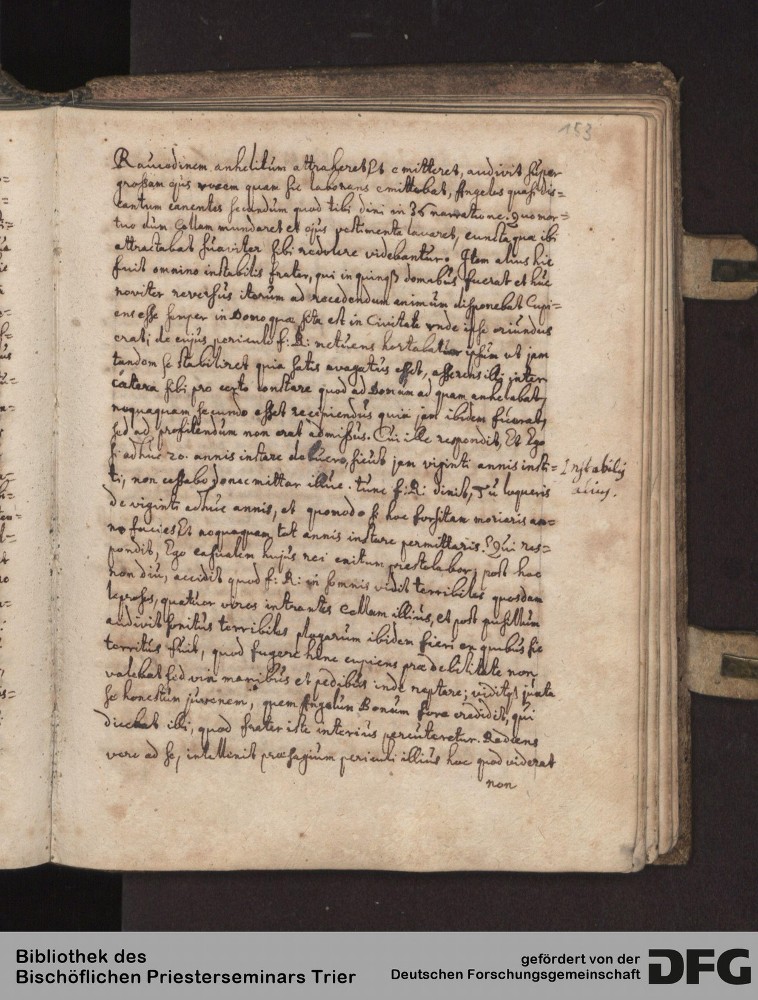 153
Raucedinem anhelitum attraheret Et emitteret, audivit super
grossam ejus vocem quam sic laborans emittebat, Angelos quasi dis=
cantum canentes secundum quod tibi dixi in 36 narratione. Quo mor=
tuo dum Cellam mundaret et ejus vestimenta lavaret, cuncta quæ ibi
attractabat suaviter sibi redolere videbantur. Item alius hic
fuit omnino instabilis frater, qui in quinque domibus fuerat et huc
noviter reversus iterum ad recedendum animum disponebat Cupi=
ens esse semper in Domo quæ sita est in Civitate unde ipse oriundus
erat; de cujus periculo f: R: metuens hortabatur ipsum ut jam
tandem se stabiliret quia satis avagatus esset, asserens illi inter
cætera sibi pro certo constare quod ad Domum ad quam anhelabat
nequaquam secundo esset recipiendus quia jam ibidem fuerat
sed ad profitendum non erat admissus. Cui ille respondit, Et Ego
si adhuc 20. annis instare debuero, sicut jam viginti annis insti=
ti, non cessabo donec mittar illuc. tunc f: R: dixit, Tu loqueris
de viginti adhuc annis, et quomodo si hoc forsitan morieris an=
no facies Et nequaquam tot annis instare permittaris? Qui res=
pondit, Ego casualem hujus rei exitum præstolabor; post hoc
non diu, accidit quod f: R: in somnis vidit terribiles quosdam
leprosos, quatuor viros intrantes Cellam illius, et post pusillum
audivit sonitus terribiles plagarum ibidem fieri ex quibus sic
territus fuit, quod fugere hinc cupiens præ debilitate non
valebat sed vix manibus et pedibus inde reptare; viditque juxta
se honestum juvenem, quem Angelum Bonum fore credidit, qui
dicebat illi, quod frater iste interius percuteretur. Rediens
vero ad se, intellexit præsagium periculi illius hoc quod viderat
non
Instabilis
alius.
Bibliothek des
Bischöflichen Priesterseminars Trier
gefördert von der
Deutschen Forschungsgemeinschaft
DFG